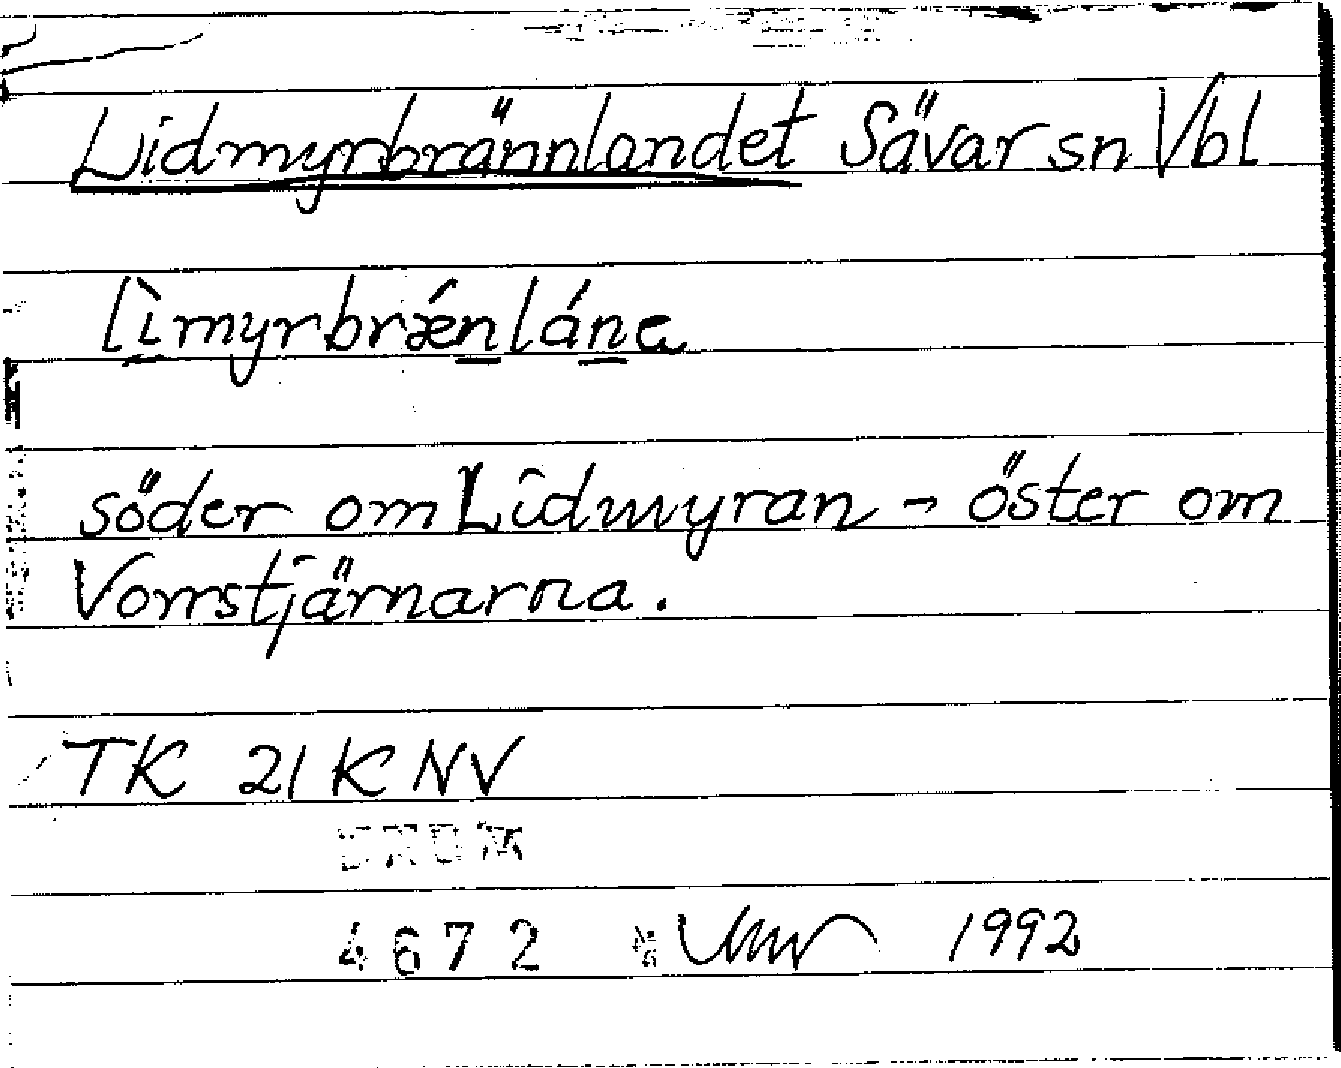 Lidmyrbrännlandet Sävar sn Vbl
lìmyrbrǽnlána
söder om Lidmyran - öster om
Vorrstjärnarna.
TK 21 K NV
4672 1992